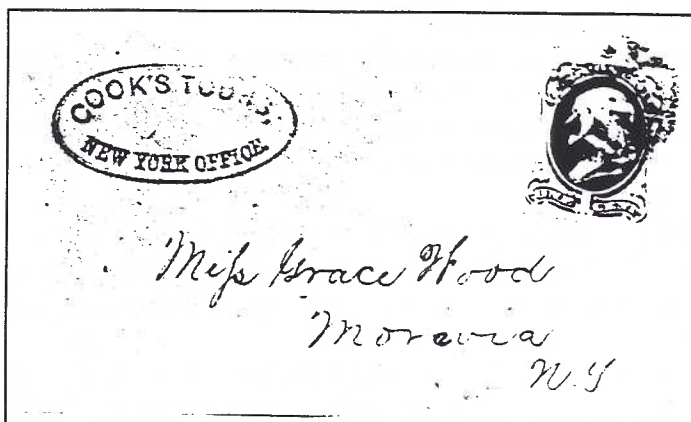 COOK'S TOURS,
NEW YORK OFFICE.
Miſs Grace Wood
Moravia
N.Y